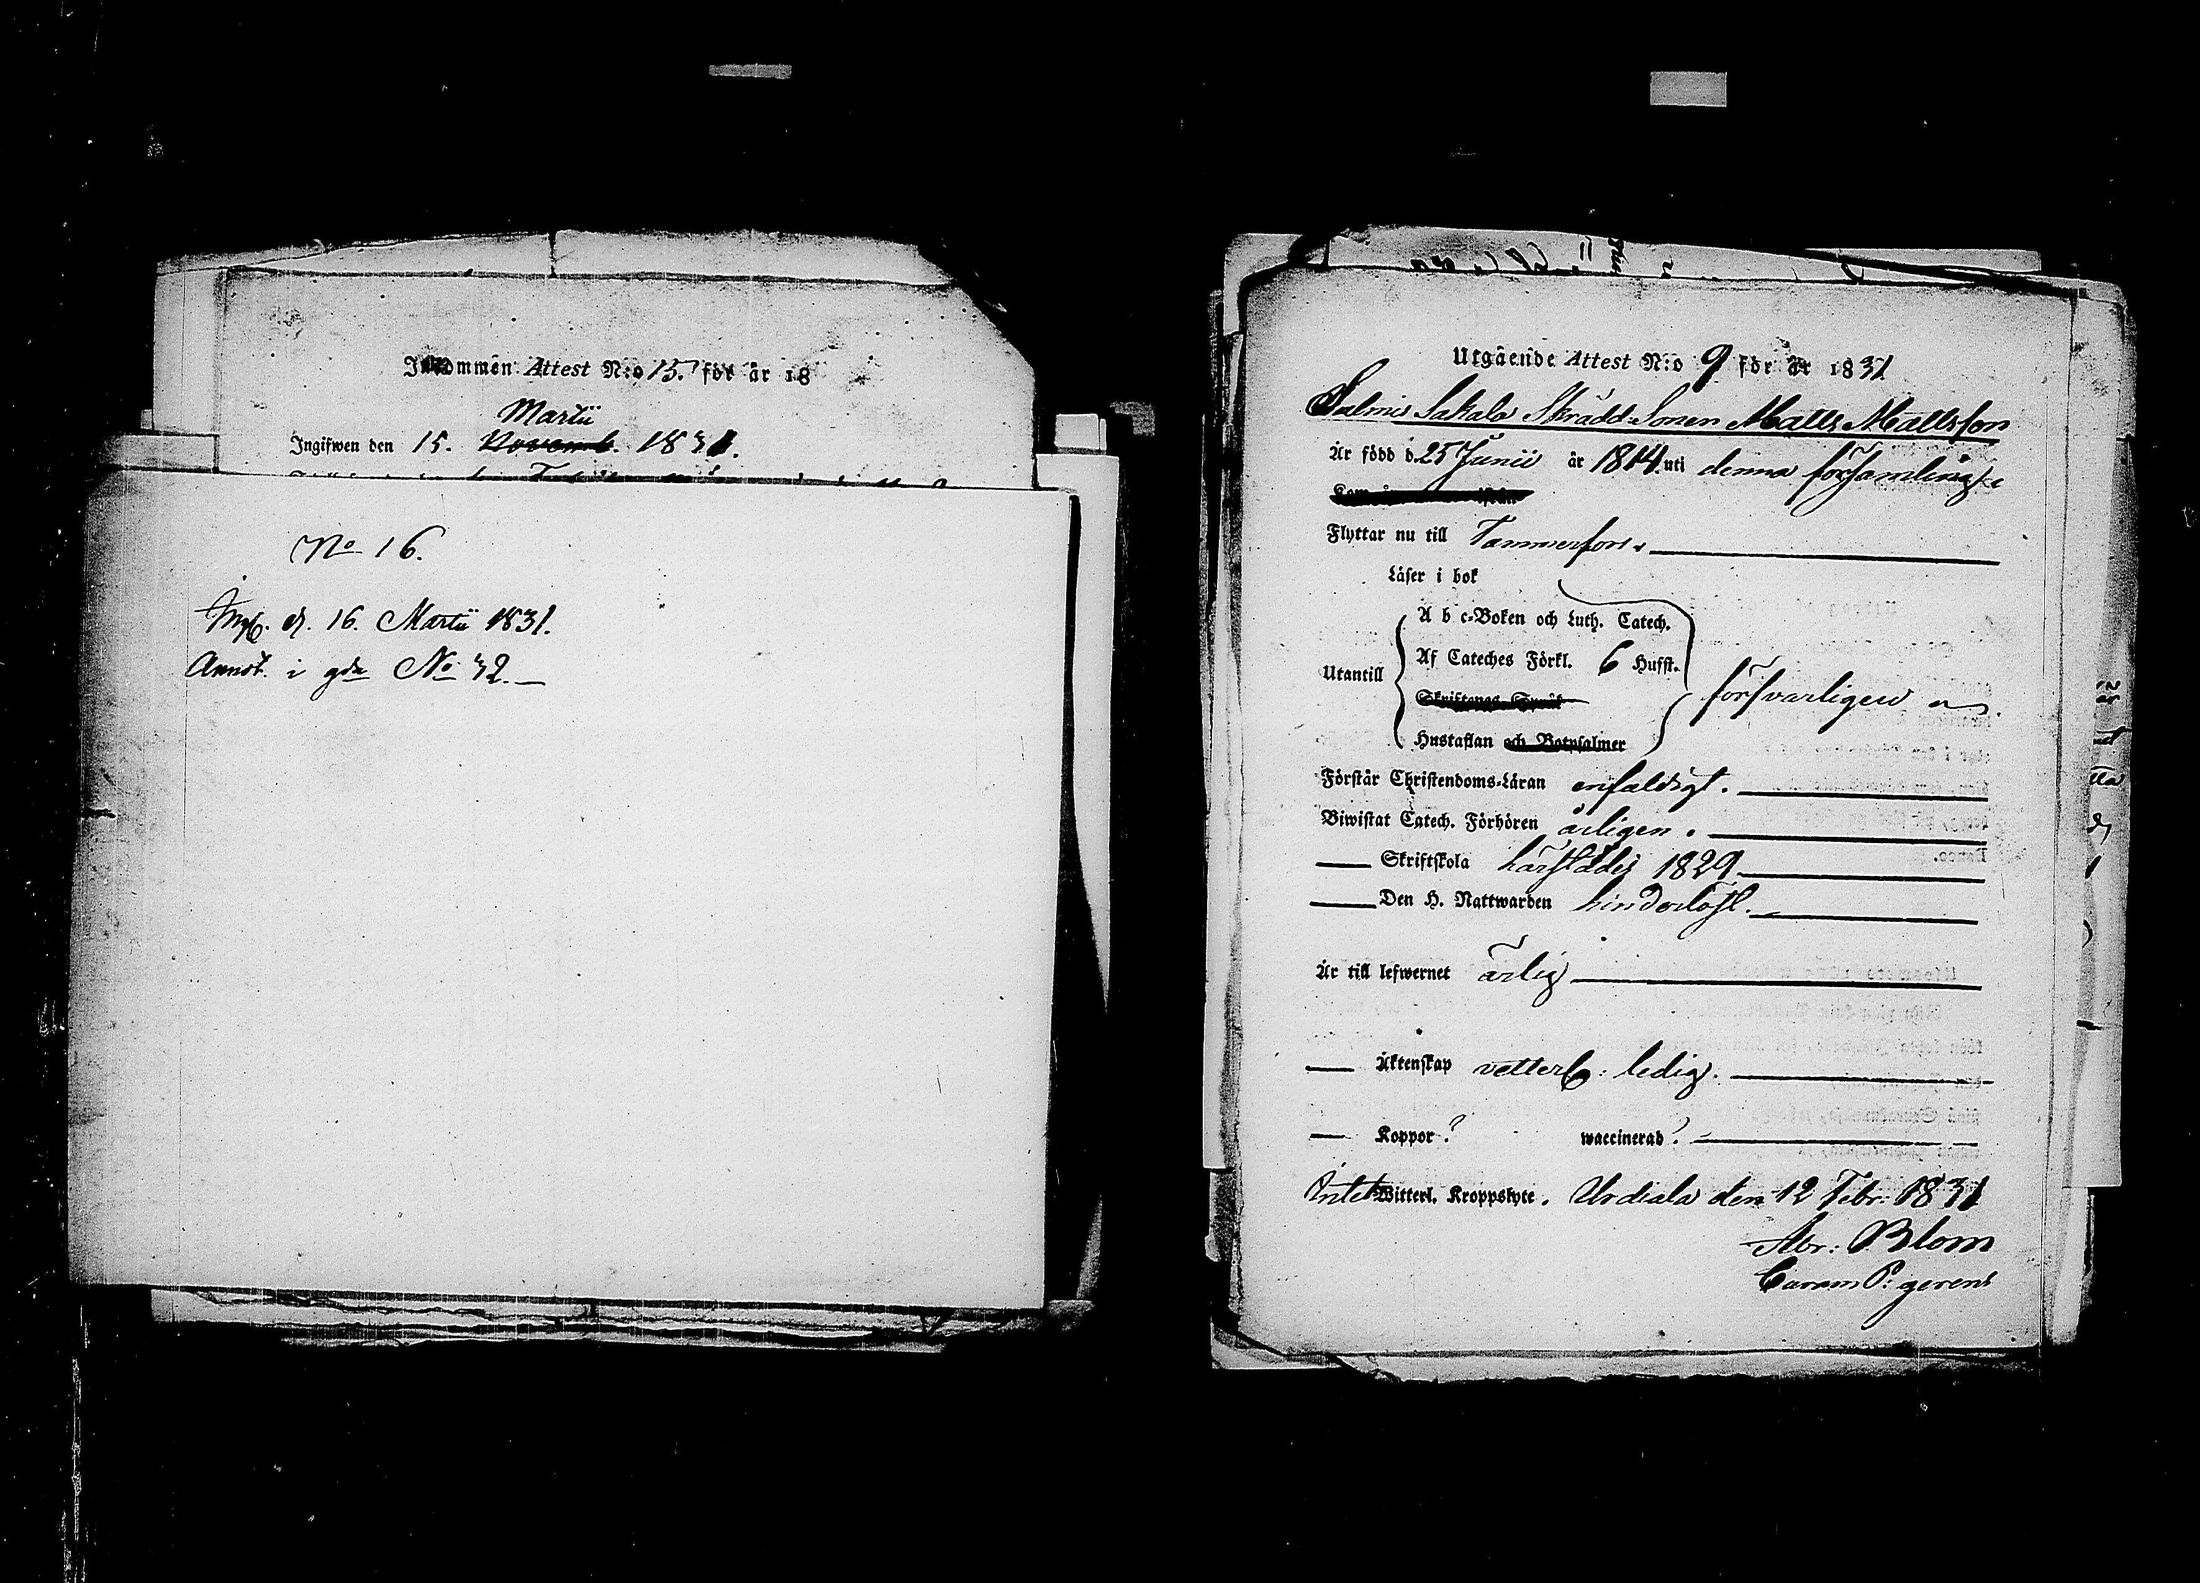 Inkommen Attest N:o 15. för år 18
Martii
Ingifwen den 15. Novemb. 1831.
No 16.
Ingf. d. 16. Martii 1831.
Annot. i gda No 32.
Utgående Attest N:o 9 för år 1831
Salmis Sakala Skrädd. Sonen Matts Mattsson
Är född d. 25 Junii år 1814. uti denna församling
Flyttar nu till Tammerfors.
Läser i bok
A b c-Boken och Luth. Catech.
Utantill
Af Cateches Förkl. 6 Hufst.
Skriftenes Språk
försvarligen
Hustaflan och Botpsalmer
Förstår Christendoms-Läran enfaldigt.
Biwistat Catech. Förhören årligen.
Skriftskola härstädes 1829.
Den H. Nattwarden hinderlöst.
Är till lefwernet ärlig
Äktenskap vetterl: ledig.
Koppor? waccinerad?
Intet Witterl. Kroppslyte. Urdiala den 12 Febr: 1831
Abr: Blom
Curam P: gerens